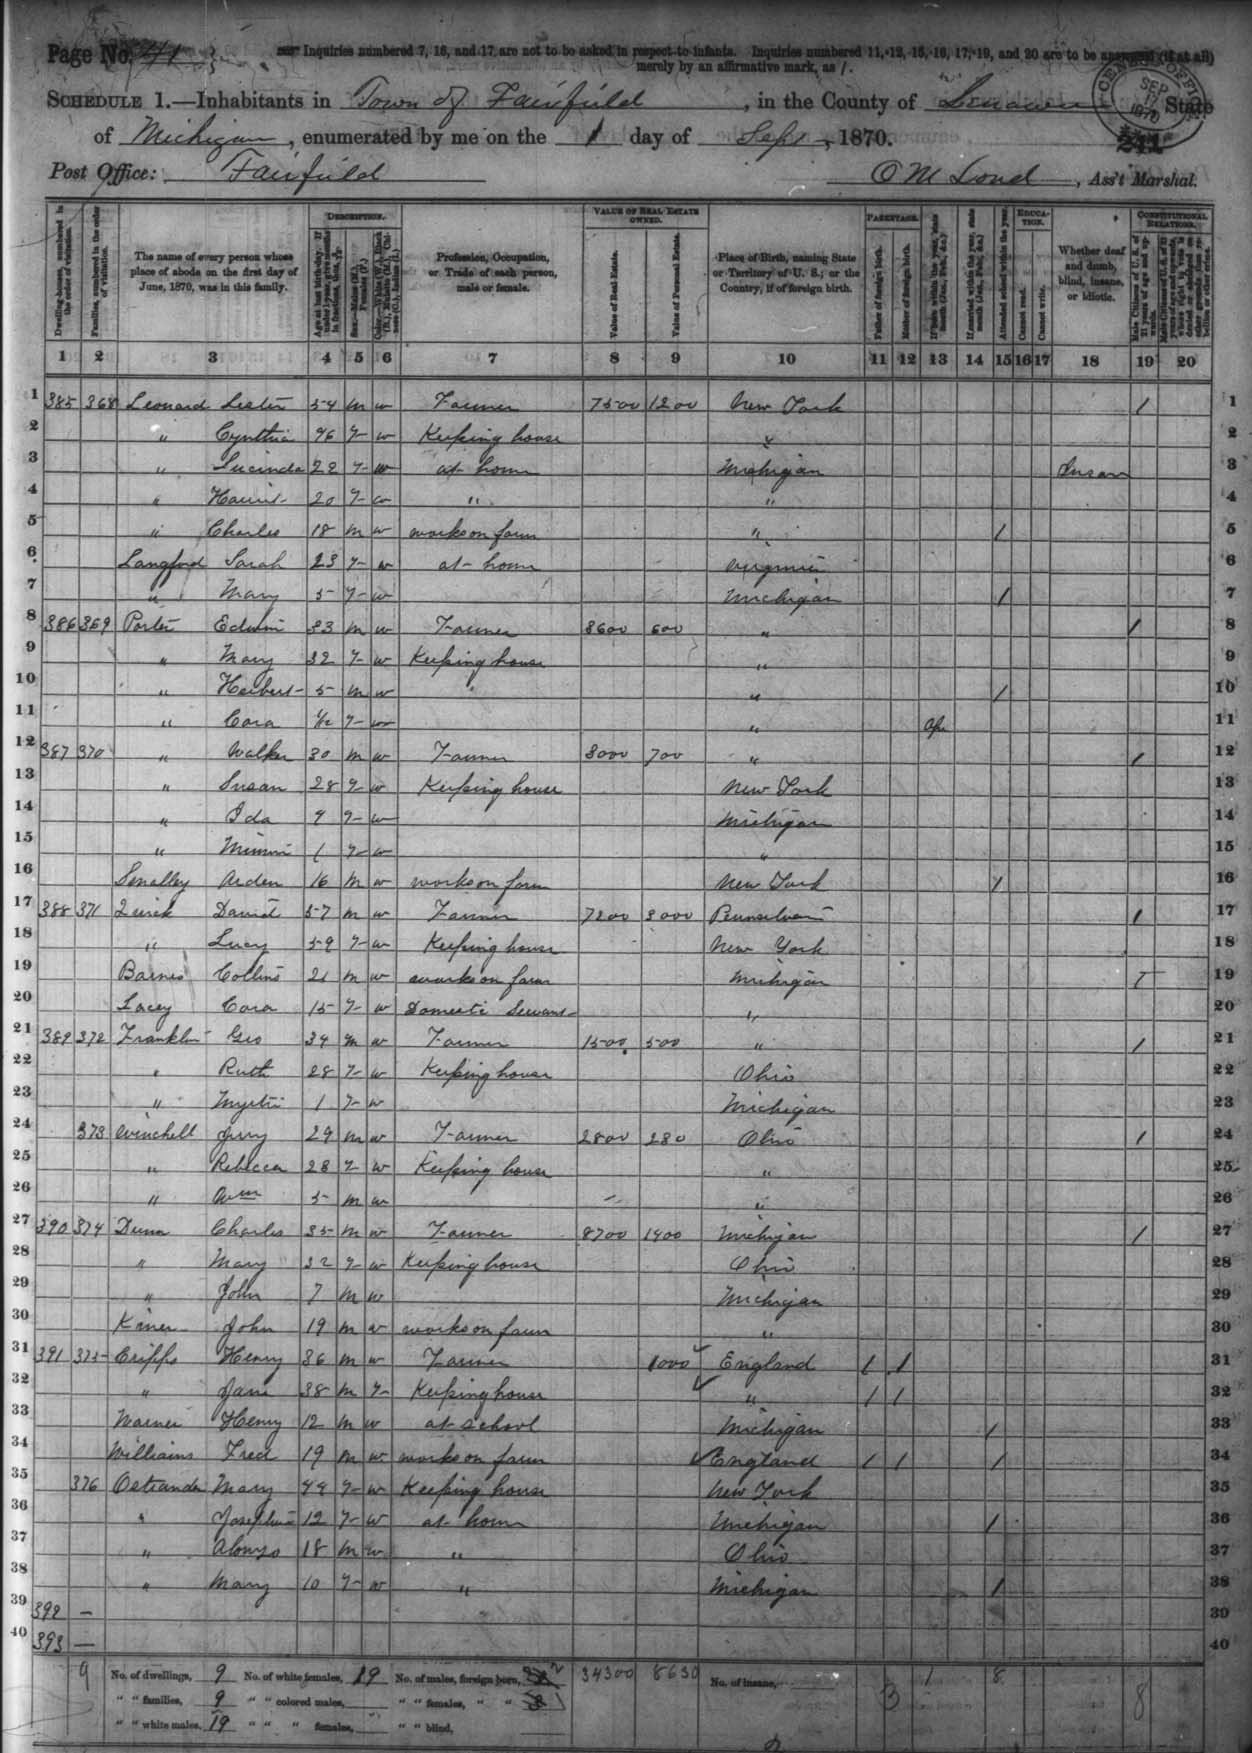 Page No. 41
Inquiries numbered 7, 16, and 17 are not to be asked in respect to infants. Inquiries numbered 11, 12, 15, 16, 17, 19, and 20 are to be answered (if at all)
merely by an affirmative mark, as /.
CENSUS OFFICE SEP 17 1870
SCHEDULE 1.—Inhabitants in Town of Fairfield, in the County of Lenawee State
of Michigan, enumerated by me on the 1 day of Sept, 1870.
241
Post Office: Fairfield O M Loud, Ass't Marshal.
Dwelling-houses, numbered in the order of visitation.
Families, numbered in the order of visitation.
The name of every person whose place of abode on the first day of June, 1870, was in this family.
DESCRIPTION.
Age at last birth-day. If under 1 year, give months in fractions, thus, 3/12
Sex.—Males (M.), Females (F.)
Color.—White (W.), Black (B.), Mulatto (M.), Chinese (C.), Indian (I.)
Profession, Occupation, or Trade of each person, male or female.
VALUE OF REAL ESTATE OWNED.
Value of Real Estate.
Value of Personal Estate.
Place of Birth, naming State or Territory of U. S.; or the Country, if of foreign birth.
PARENTAGE.
Father of foreign birth.
Mother of foreign birth.
If born within the year, state month (Jan., Feb., &c.)
If married within the year, state month (Jan., Feb., &c.)
Attended school within the year.
EDUCATION.
Cannot read.
Cannot write.
Whether deaf and dumb, blind, insane, or idiotic.
CONSTITUTIONAL RELATIONS.
Male Citizens of U. S. of 21 years of age and upwards.
1 2 3 4 5 6 7 8 9 10 11 12 13 14 15 16 17 18 19 20
1 385 368 Leonard Lester 54 m w Farmer 7500 1200 New York / 1
2 " Cynthia 46 F w Keeping house " 2
3 " Lucinda 22 F w at home Michigan Insane 3
4 " Harriet 20 F w " " 4
5 " Charles 18 m w works on farm " / 5
6 Langford Sarah 23 F w at home Virginia 6
7 " Mary 5 F w Michigan / 7
8 386 369 Porter Edwin 33 m w Farmer 8600 600 " / 8
9 " Mary 32 F w Keeping house " 9
10 " Herbert 5 m w " / 10
11 " Cora F w " Apr 11
12 387 370 " Walker 30 m w Farmer 8000 700 " / 12
13 " Susan 28 F w Keeping house New York 13
14 " Ida F w Michigan 14
15 " Minnie 1 F w " 15
16 Smalley Arden 16 m w works on farm New York / 16
17 388 371 Quick David 57 m w Farmer 7200 3000 Pennsilvani / 17
18 " Lucy 59 F w Keeping house New York 18
19 Barnes Collins 21 m w works on farm Michigan 19
20 Lacey Cora 15 F w Domestic Servant " 20
21 389 372 Franklin Geo 34 m w Farmer 1500 500 " / 21
22 " Ruth 28 F w Keeping house Ohio 22
23 " Myrtie 1 F w Michigan 23
24 373 Winchell Jerry 29 m w Farmer 2800 280 Ohio / 24
25 " Rebecca 28 F w Keeping house " 25
26 " Wm 5 m w " 26
27 390 374 Dunn Charles 35 m w Farmer 8700 1400 Michigan / 27
28 " Mary 32 F w Keeping house Ohio 28
29 " John 7 m w Michigan 29
30 John 19 m w works on farm " 30
31 391 375 Cripps Henry 36 m w Farmer 1000 England / / 31
32 " Jane 38 m F Keeping house " / / 32
33 Warner Henry 12 m w at school Michigan / 33
34 Williams Fred 19 m w works on farm England / / / 34
35 376 Ostrander Mary 44 F w Keeping house New York 35
36 " Josephine 12 F w at home Michigan / 36
37 " Alonzo 18 m w " Ohio 37
38 " Mary 10 F w " Michigan / 38
39 392 — 39
40 393 — 40
9 No. of dwellings, 9 No. of white females, 19 No. of males, foreign born, 2 34300 8630 No. of insane, 3 1 8 8
" " families, 9 " " colored males, " " females, " " 3
" " white males, 19 " " " females, " " blind,